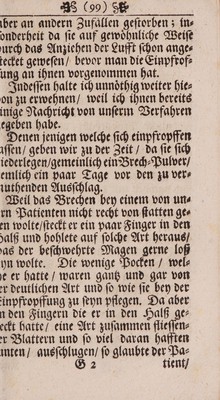 (99)
aber an andern Zufällen gestorben; in-
sonderheit da sie auf gewöhnliche Weise
durch das Anziehen der Lufft schon ange-
stecket gewesen/ bevor man die Einpfrof-
fung an ihnen vorgenommen hat.
Indessen halte ich unnöthig weiter hie-
von zu erwehnen/ weil ich ihnen bereits
einige Nachricht von unserm Verfahren
gegeben habe.
Denen jenigen welche sich einpfropffen
lassen/ geben wir zu der Zeit/ da sie sich
niederlegen/ gemeinlich ein Brech-Pulver/
nemlich ein paar Tage vor den zu ver-
muthenden Ausschlag.
Weil das Brechen bey einem von un-
ern Patienten nicht recht von statten ge-
hen wolte/ steckt er ein paar Finger in den
Halß und hohlete auf solche Art heraus/
was der beschwehrte Magen gerne loß
seyn wolte. Die wenige Pocken/ wel-
che er hatte/ waren gantz und gar von
der deutlichen Art und so wie sie bey der
Einpfropffung zu seyn pflegen. Da aber
an den Fingern die er in den Halß ge-
steckt hatte/ eine Art zusammen fliessen-
der Blattern und so viel daran hafften
kunten/ ausschlugen/ so glaubte der Pa-
G 2 tient/